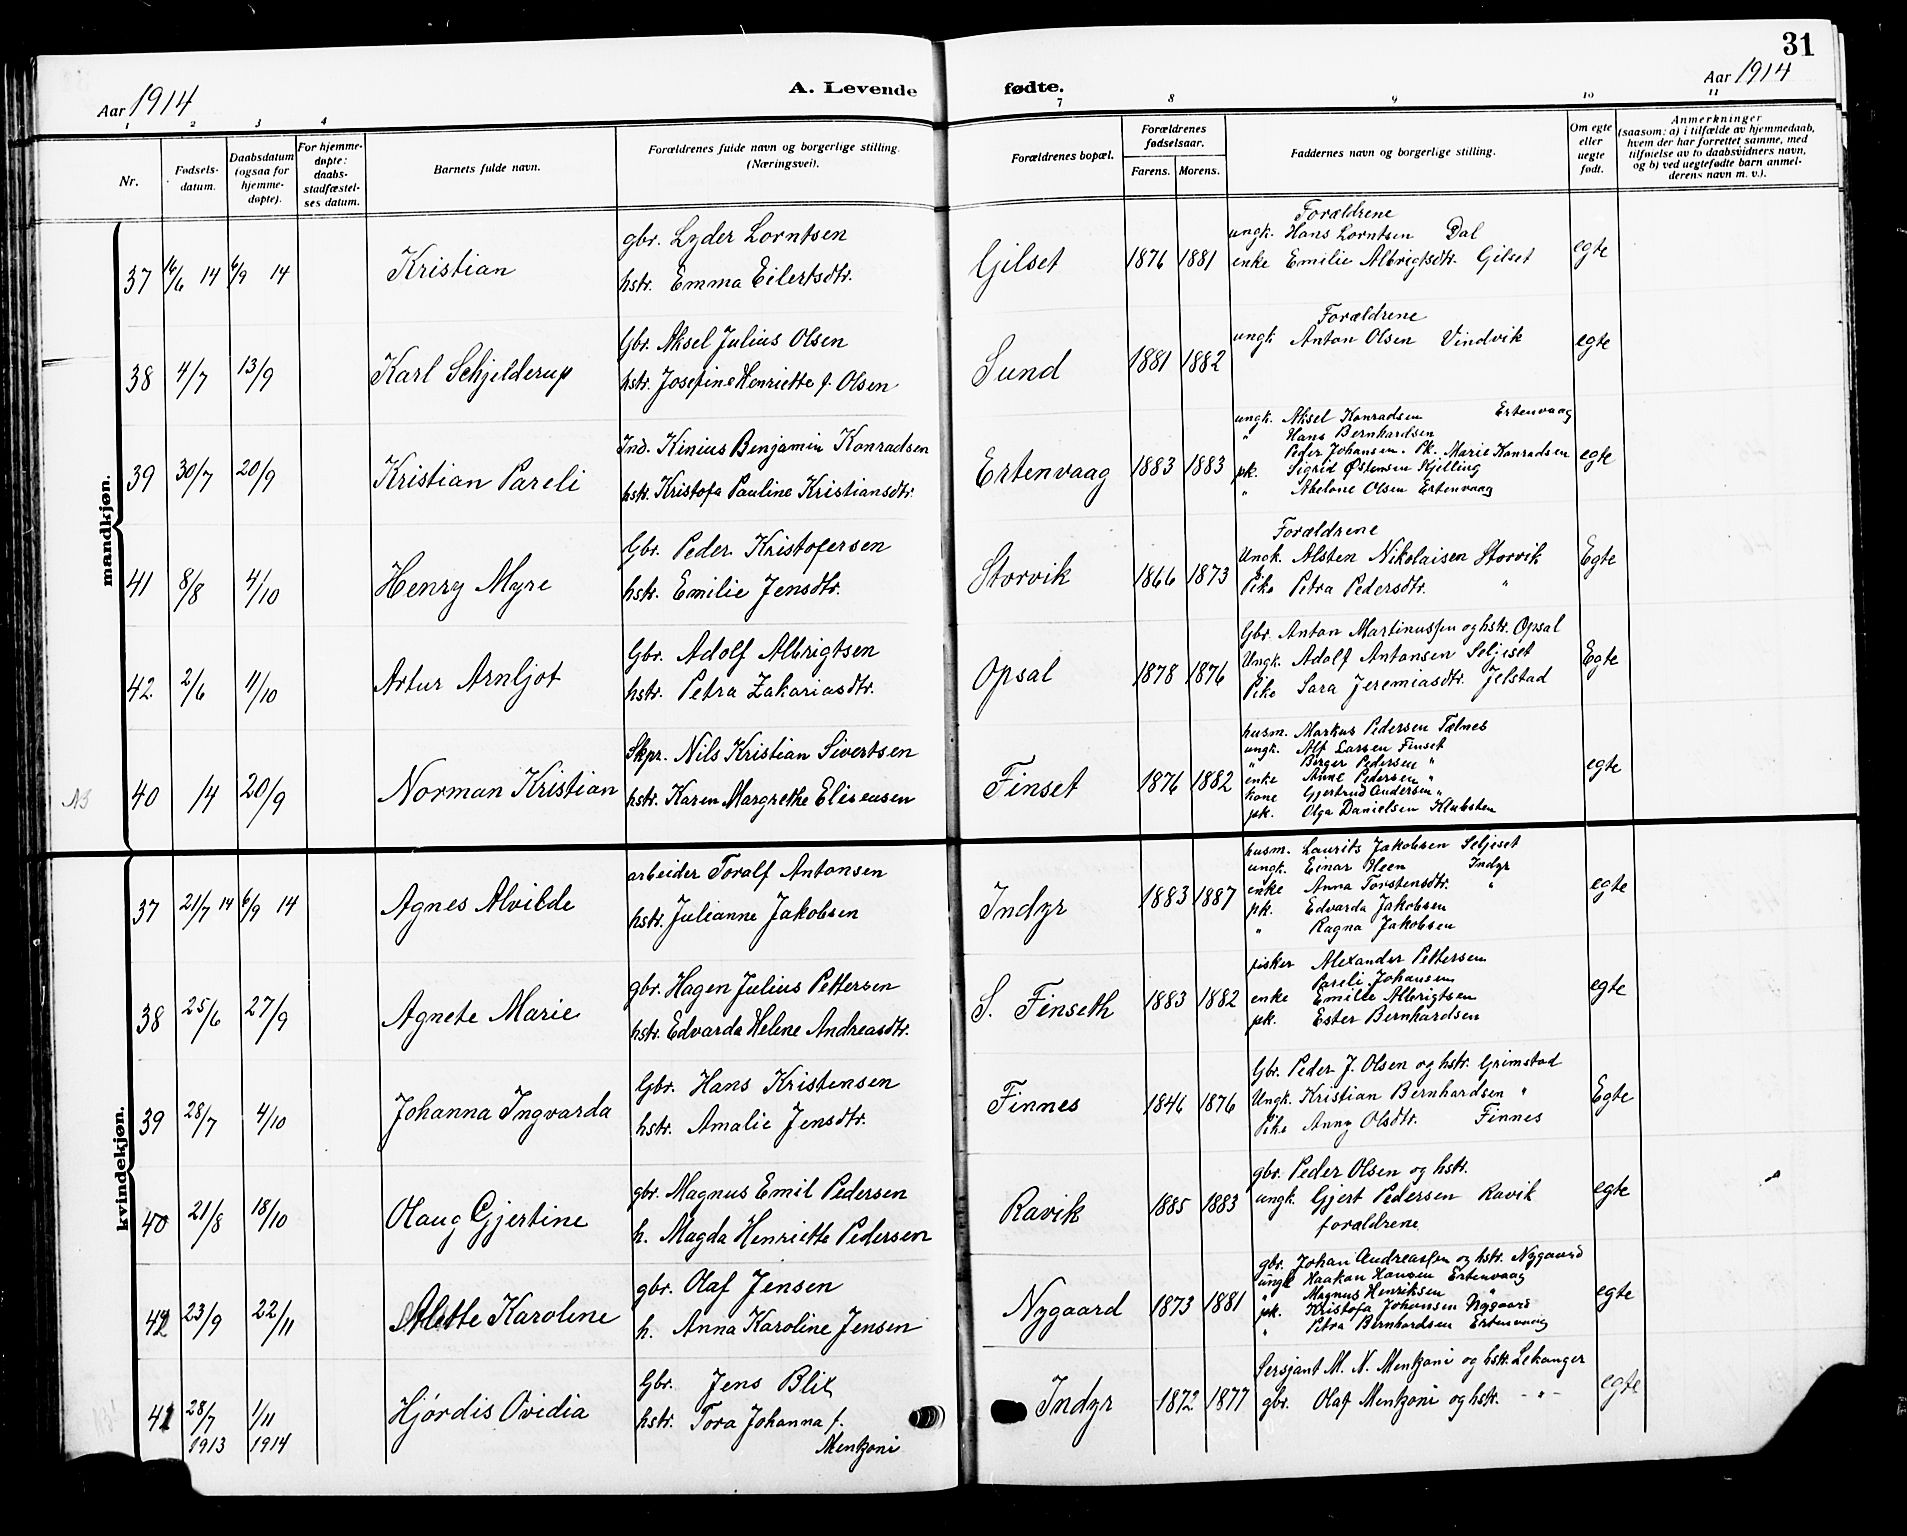 31
Aar 1914
A. Levende fødte.
Aar 1914
1 2 3 4 7 8 9 10 11
Nr.
Fødsels-
datum.
Daabsdatum
(ogsaa for
hjemme-
døpte).
For hjemme-
døpte:
daabs-
stadfæstel-
ses datum.
Barnets fulde navn.
Forældrenes fulde navn og borgerlige stilling.
(Næringsvei).
Forældrenes bopæl.
Forældrenes
fødselsaar.
Farens. Morens.
Faddernes navn og borgerlige stilling.
Om egte
eller
uegte
født.
Anmerkninger
(saasom: a) i tilfælde av hjemmedaab,
hvem der har forrettet samme, med
tilføielse av to daabsvidners navn,
og b) ved uegtefødte barn anmel-
derens navn m. v.).
mandkjøn.
37 16/6 14 6/9 14 Kristian
gbr. Lyder Lorntsen
hstr. Emma Eilertsdtr.
Gilset 1876 1881
Forældrene
ungk. Hans Lorntsen Dal
enke Emilie Albrigtsdtr. Gilset
egte
38 4/7 13/9 Karl Schjelderup
Gbr. Aksel Julius Olsen
hstr. Josefine Henriette f. Olsen
Sund 1881 1882
Forældrene
ungk. Anton Olsen Vindvik
egte
39 30/7 20/9 Kristian Pareli
Ind. Kinius Benjamin Konradsen
hstr. Kristofa Pauline Kristiansdtr.
Ertenvaag 1883 1883
ungk. Aksel Konradsen Ertenvaag
" Hans Bernhardsen
Peder Johansen. Pk. Marie Konradsen
pk. Sigrid Østensen Kjelling
" Abelone Olsen Ertenvaag
egte
41 8/8 4/10 Henry Myre
Gbr. Peder Kristofersen
hstr. Emilie Jensdtr.
Storvik 1866 1873
Forældrene
Ungk. Alsten Nikolaisen Storvik
Pike Petra Pedersdtr. "
Egte
42 2/6 4/10 Artur Arnljot
Gbr. Adolf Albrigtsen
hstr. Petra Zakariasdtr.
Opsal 1878 1876
Gbr. Anton Martinussen og hstr. Opsal
Ungk. Adolf Antonsen Seljeset
Pike Sara Jeremiasdtr. Jelstad
Egte
40 14 20/9 Norman Kristian
Skpr. Nils Kristian Sivertsen
hstr. Karen Margrethe Eliseusen
Finset 1876 1882
husm. Markus Pedersen Telnes
ungk. Alf Larsen Finset
" Birger Pedersen "
enke Anne Pedersen "
kone Gjertrud Andersen "
pk. Olga Danielsen Klubsten
egte
kvindekjøn.
37 21/7 14 6/9 14 Agnes Alvilde
arbeider Toralf Antonsen
hstr. Julianne Jakobsen
Indyr 1883 1887
husm. Laurits Jakobsen Seljeset
ungk. Einar Oleen Indyr
enke Anna Torstensdtr. "
pk. Edvarda Jakobsen
" Ragna Jakobsen
egte
38 25/6 27/9 Agnete Marie
gbr. Hagen Julius Pettersen
hstr. Edvarda Helene Andreasdtr.
S. Finseth 1883 1882
fisker Alexander Pettersen
Pareli Johansen
enke Emilie Albrigtsen
pk. Ester Bernhardsen
egte
39 28/7 4/10 Johanna Ingvarda
Gbr. Hans Kristensen
hstr. Amalie Jensdtr.
Finnes 1846 1876
Gbr. Peder J. Olsen og hstr. Grimstad
Ungk. Kristian Bernhardsen "
Pike Anny Olsdtr. Finnes
Egte
40 21/8 18/10 Olaug Gjertine
gbr. Magnus Emil Pedersen
h. Magda Henriette Pedersen
Ravik 1885 1883
gbr. Peder Olsen og hstr.
ungk. Gjert Pedersen Ravik
forældrene
egte
42 23/9 22/11 Alette Karoline
gbr. Olaf Jensen
h. Anna Karoline Jensen
Nygaard 1873 1881
gbr. Johan Andreassen og hstr. Nygaard
ungk Haakon Hansen Ertenvaag
" Magnus Henriksen "
pk. Kristofa Johansen Nygaard
" Petra Bernhardsen Ertenvaag
egte
41 28/7 1913 1/11 1914 Hjørdis Ovidia
Gbr. Jens Blix
hstr. Tora Johanna f.
Mentzoni
Indyr 1872 1877
Sersjant M. N. Mentzoni og hstr. Lekanger
gbr. Olaf Mentzoni og hstr. - " -
egte